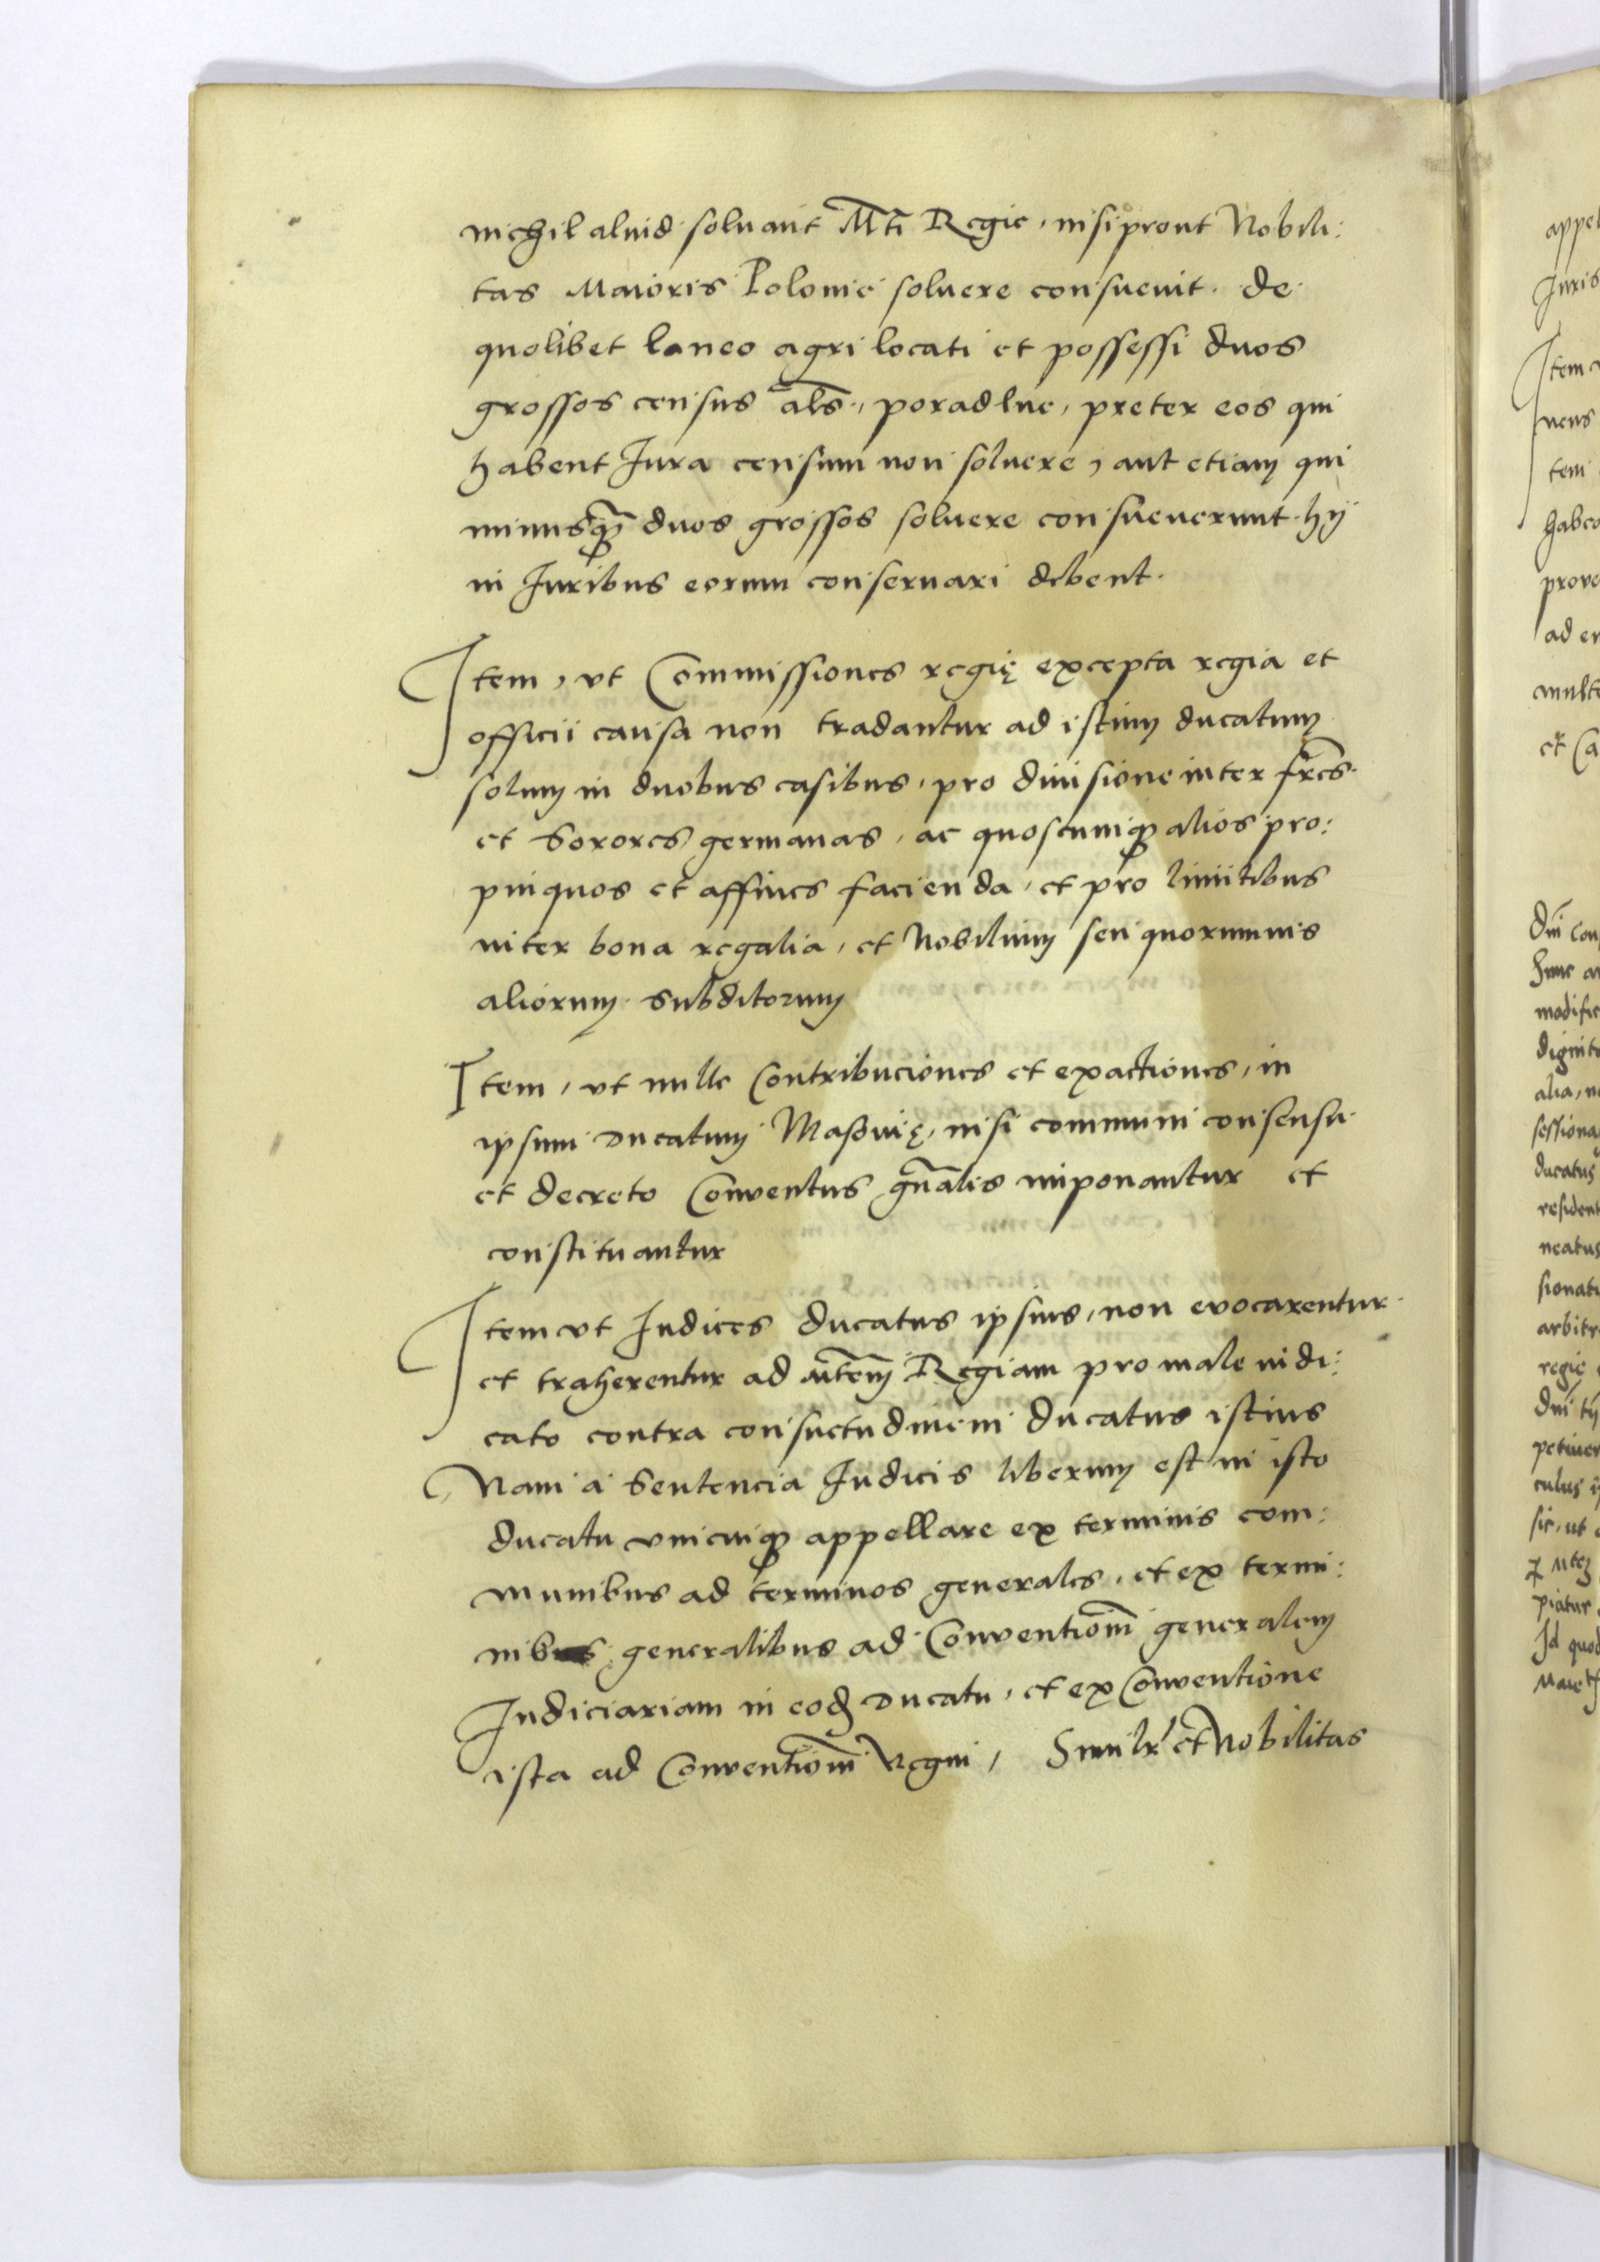 nichil aluid soluant Mti Regie, nisi prout Nobili:
tas Maioris Polonie soluere consueuit. de
quolibet laneo agri locati et possessi duos
grossos census als, poradlne, preter eos qui
habent Iura censum non soluere, aut etiam qui
minusque duos grossos soluere consueuerunt. hij
in Iuribus eorum conseruari debent.
Item, vt Commissiones regię excepta regia et
officii causa non tradantur ad istum ducatum
solum in duobus casibus, pro diuisione inter frēs
et Sorores germanas, ac quoscumque alios pro:
pinquos et affines facienda, et pro limitibus
inter bona regalia, et Nobilium seu quorumuis
aliorum subditorum
Item, vt nulle Contribuciones et exactiones, in
ipsum ducatum Masouię, nisi communi consensu
et decreto Conventus gnalis imponantur et
constituantur
Item vt Iudices ducatus ipsius, non evocarentur
et traherentur ad Mtem Regiam pro male iudi:
cato contra consuetudinem ducatus istius
Nam a Sentencia Iudicis liberum est in isto
ducatu vnicuique appellare ex terminis com:
munibus ad terminos generales, et ex termi:
nibus generalibus ad Conventiom generalem
Iudiciariam in eod ducatu, et ex Conventione
ista ad Conventiom Regni, Similr et Nobilitas
appel
Iuris
Item
uens
tem
habeo
prove
ad
multe
et Ca
Dni Con
Hunc
modific
dignit
alia, n
sessiona
ducatus
resident
neatus
sionati
arbitr
regie
Dni
petiuer
culus
sic, ut
piatur
Id quod